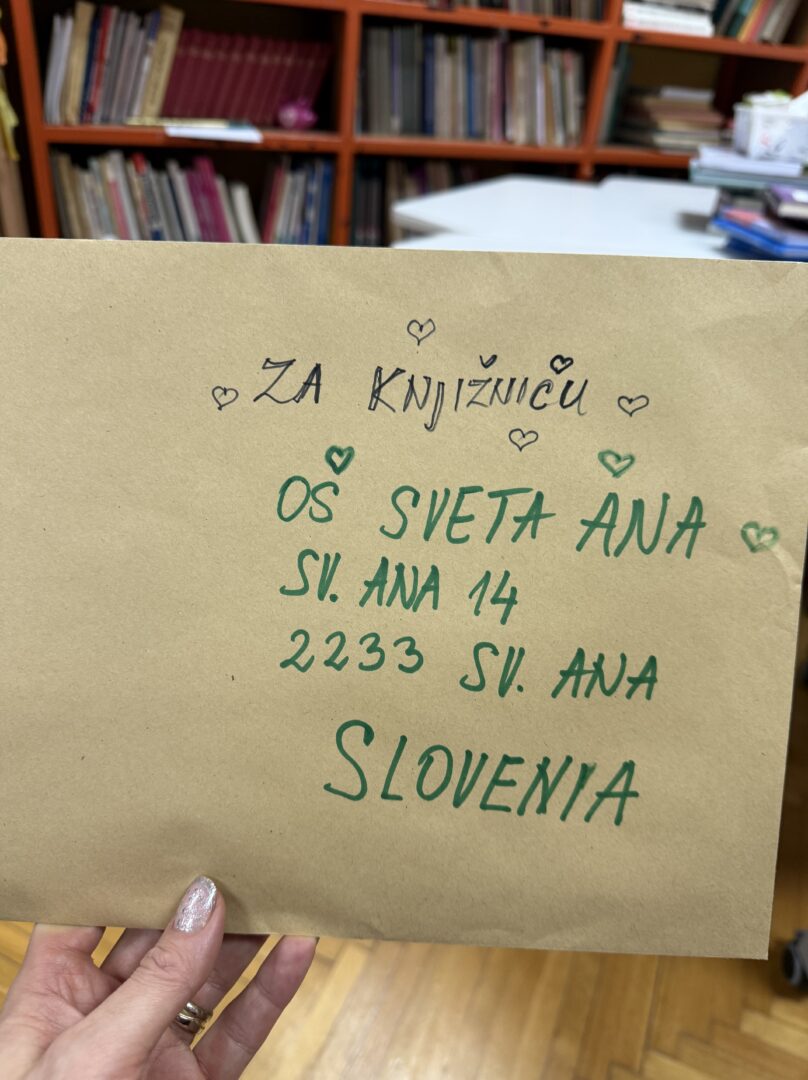 ZA KNJIŽNICU
OŠ SVETA ANA
SV. ANA 14
2233 SV. ANA
SLOVENIA